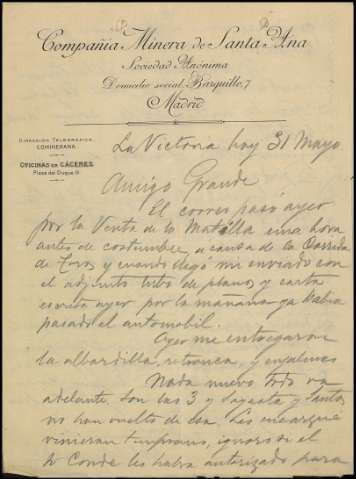 Compañía Minera de Santa Ana
Sociedad Anónima
Domicilio social, Barquillo, 7
Madrid
DIRECCIÓN TELEGRÁFICA
COMINERANA
OFICINAS EN CÁCERES
Plaza del Duque 11
La Victoria hoy 31 Mayo.
Amigo Grande
El correo pasó ayer
por la Venta de la Matilla una hora
antes de costumbre a causa de la Corrida
de Toros y cuando llegó mi enviado con
el adjunto tubo de planos y carta
escrita ayer por la mañana ya había
pasado el automobil.
Ayer me entregaron
la albardilla, retranca, y enjalmas
Nada nuevo todo va
adelante. Son las 3 y Sagasta y Santos
no han vuelto de esa. Les encargué
vinieran temprano, ignoro si el
Sr Conde les había autorizado para